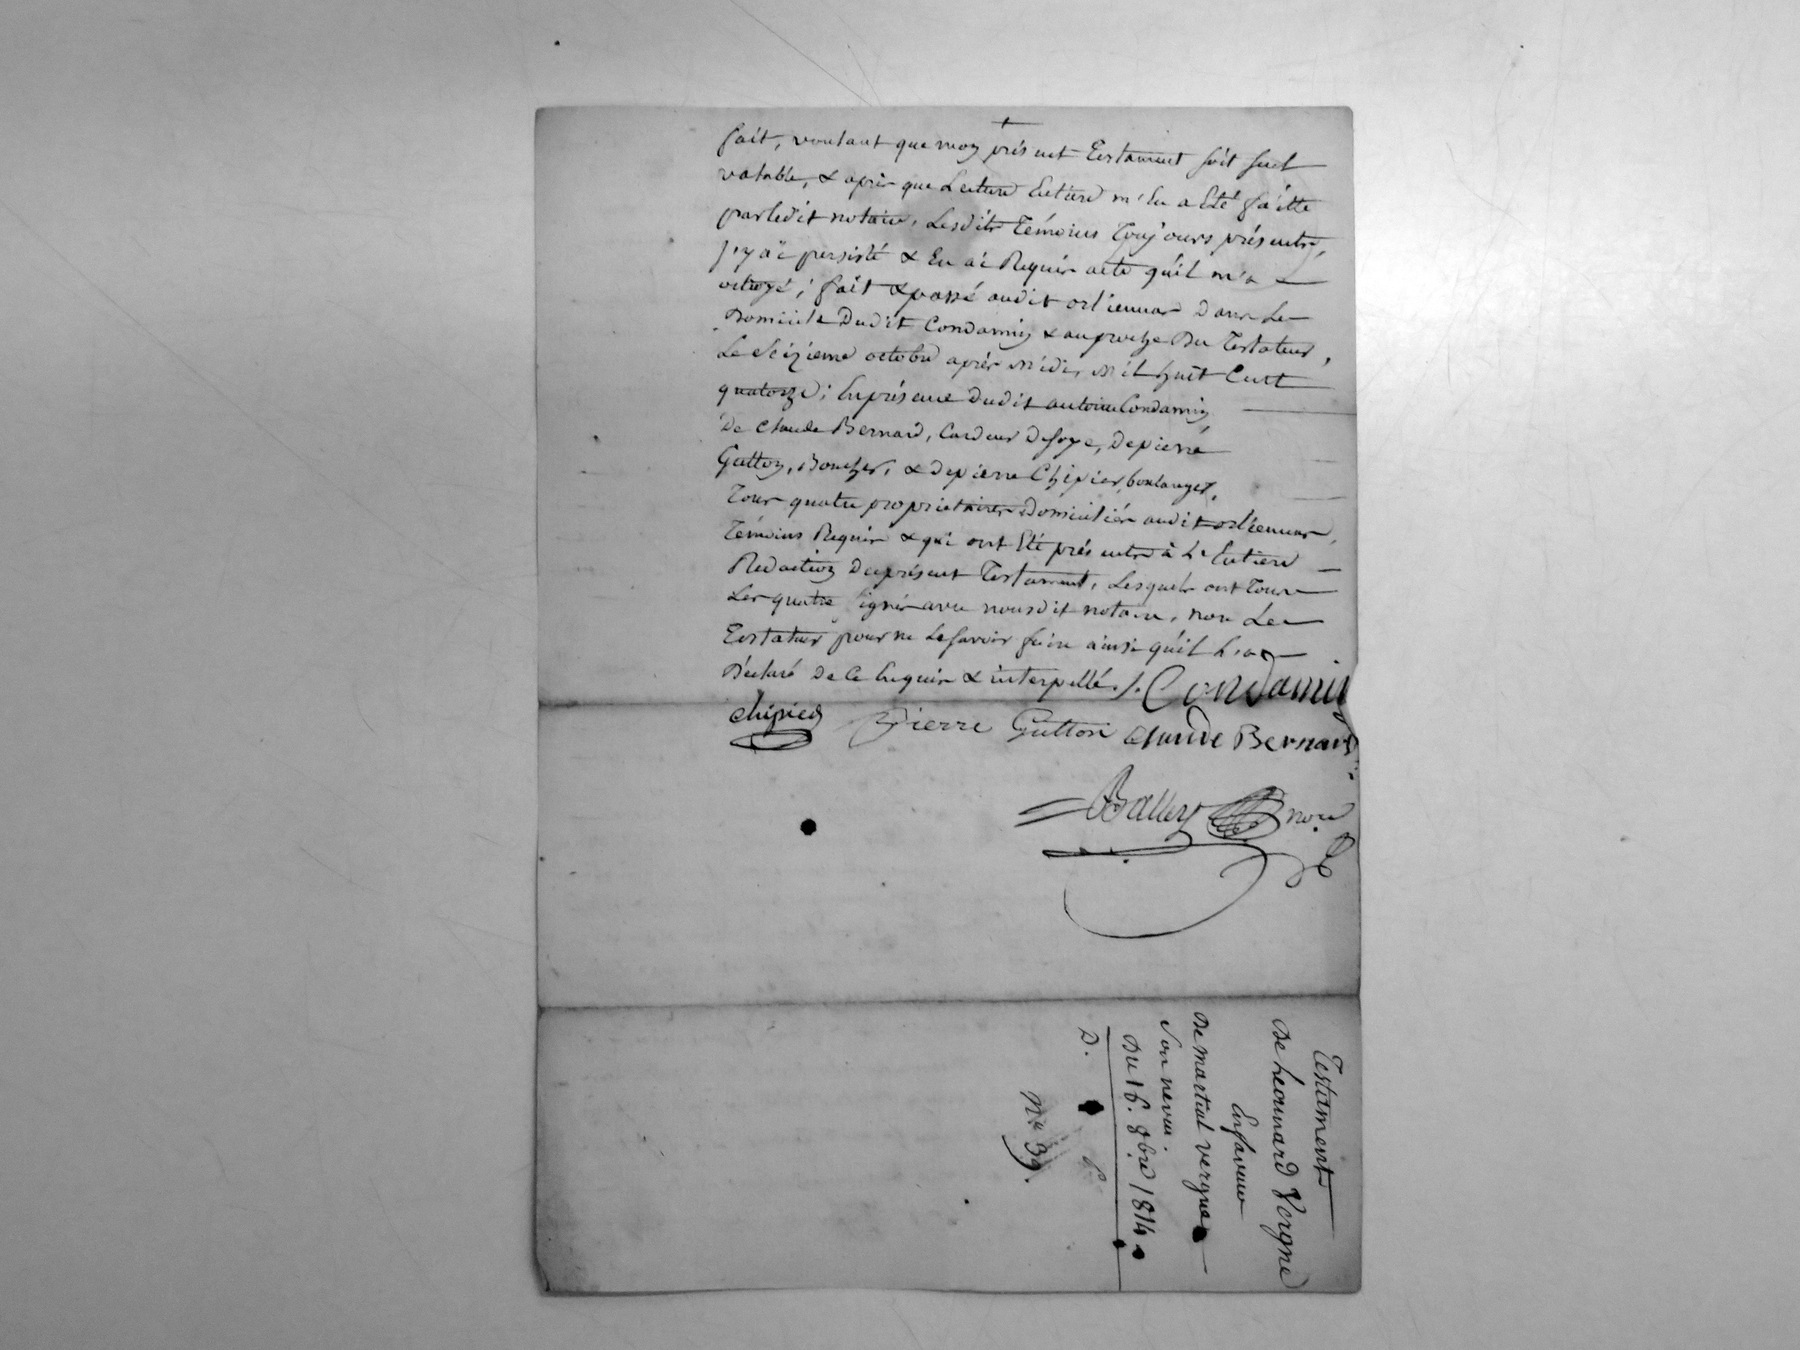 fait, voulant que mon présent Testament soit seul
valable, & après que Lecture Entiere m'En a Eté faitte
par ledit notaire, Lesdits Témoins Toujours présents,
j'y ai persisté & En ai Requis acte qu'il m'a
octroyé; fait & passé audit orliennas Dans Le
Domicile Dudit Condamin & au proche Du Testateur,
Le Seizieme octobre après Midi, Mil huit Cent
quatorze; En présence Dudit antoine Condamin
De Claude Bernard, Cardeur De soye, De pierre
Gutton, Boucher, & De pierre Chipier, boulanger,
Tous quatre propriétaires Domiciliés audit orliennas,
Témoins Requis & qui ont Eté présents à L'Entiere
Redaction Du présent Testament, Lesquels ont Tous
Les quatre signés avec nousdit notaire, non Le
Testateur pour ne Le savoir faire ainsi qu'il L'a
Déclaré De Ce Enquis & interpellé./. Condamin
chipier Pierre Gutton Claude Bernard
Balley nore
Testament
De Leonnard Vergne
En faveur
De martial vergne
Son neveu.
Du 16. 8bre 1814
D. 6
No 39.